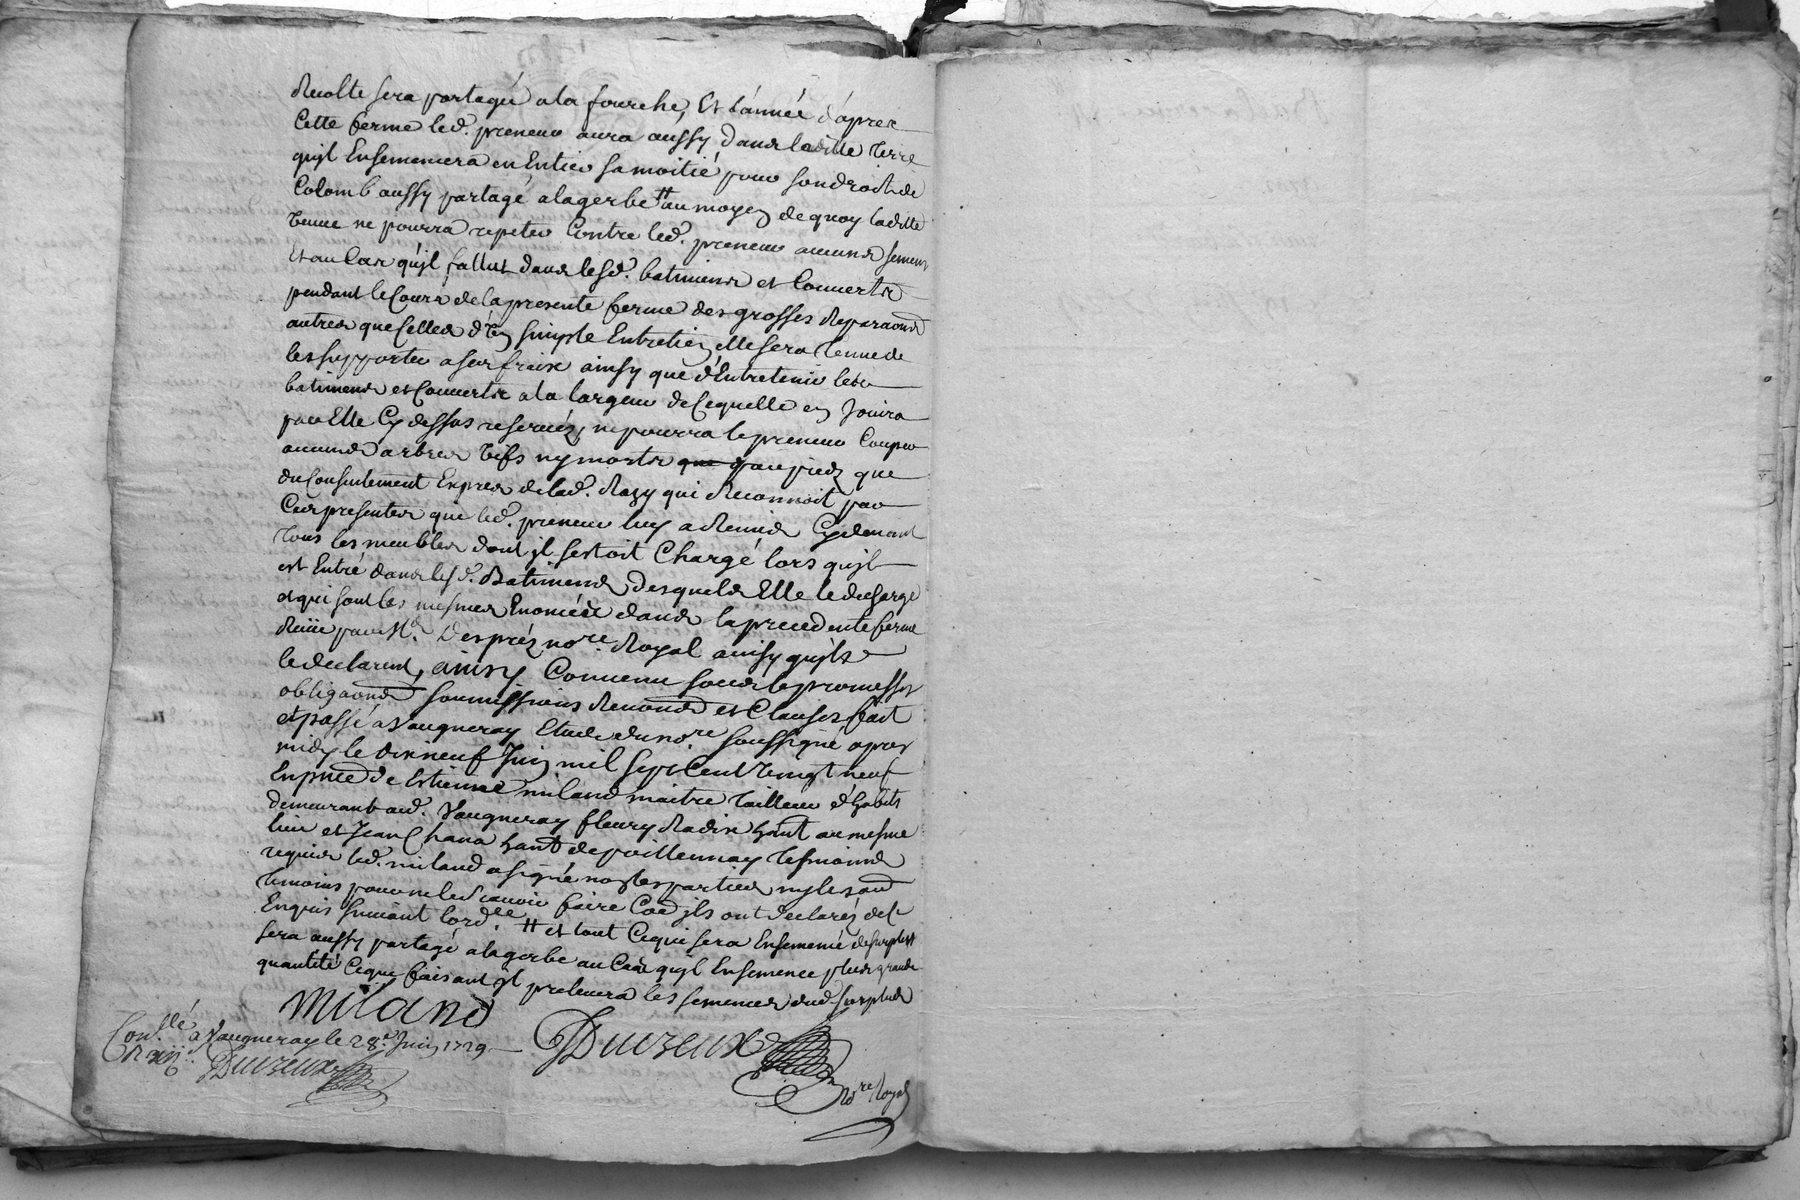 Recolte sera partagée a la fourche, Et L'année d'aprez
Cette ferme led. preneur aura aussy dans laditte Terre
qu'jl Ensemencera en Entier sa moitié pour son droit de
Colomb aussy partagé a la gerbe # au moyen de quoy laditte
ne pourra repeter Contre led. preneur aucuns semens
Et au Cas qu'jl fallut dans lesd. batimens et Couverts
pendant le Cours de la presente ferme des grosses Reparaons
autres que Celles d'un simple Entretien elle sera tenue de
les supporter a ses fraix ainsy que d'Entretenir lesd
batimens et Couverts a la largeur de Cequelle en Jouira
par Elle Cy dessus reservéz, ne pourra le preneur Couper
aucuns arbres vifs ny morts que par pied que
du Consentement Expres de lad. Razy qui Reconnoit par
Ces presentes que led. preneur luy a Remis Cydevant
Tous les meubles dont jl sestoit Chargé lors qu'jl
est Entré dans lesd. Batimens Desquels Elle le decharge
et qui sont les mesmes Enoncés dans la precedente ferme
Reçüe par Me. Despréz nore. Royal ainsy qu'jls
le declarent, ainsy Convenu sous les promesses
obligaons soumissions Renons et Clauses fait
et passé a Vaugneray Etude du nore soussigné apres
midy le dixneuf Juin mil sept Cent vingt neuf
En pnce de Estienne miland maitre Tailleur d'habits
demeurant aud. Vaugneray fleury Radix habt au mesme
lieu et Jean Chana habt de pollionnay Tesmoins
requis led. miland a signé non les parties ny les aud
Temoins pour ne le Scauoir faire Co jls ont declaréz de ce
Enquis suivant lordce. # et tout Cequi sera Ensemencé de surplus
sera aussy partagé a la gerbe au Cas qu'jl Ensemence plus grande
quantité Ceque faisant jl prelevera les semences dud. surplus
miland
Conllé a Vaugneray le 28e. Juin 1729
Duvzeux
Duvzeux
Nore Royal